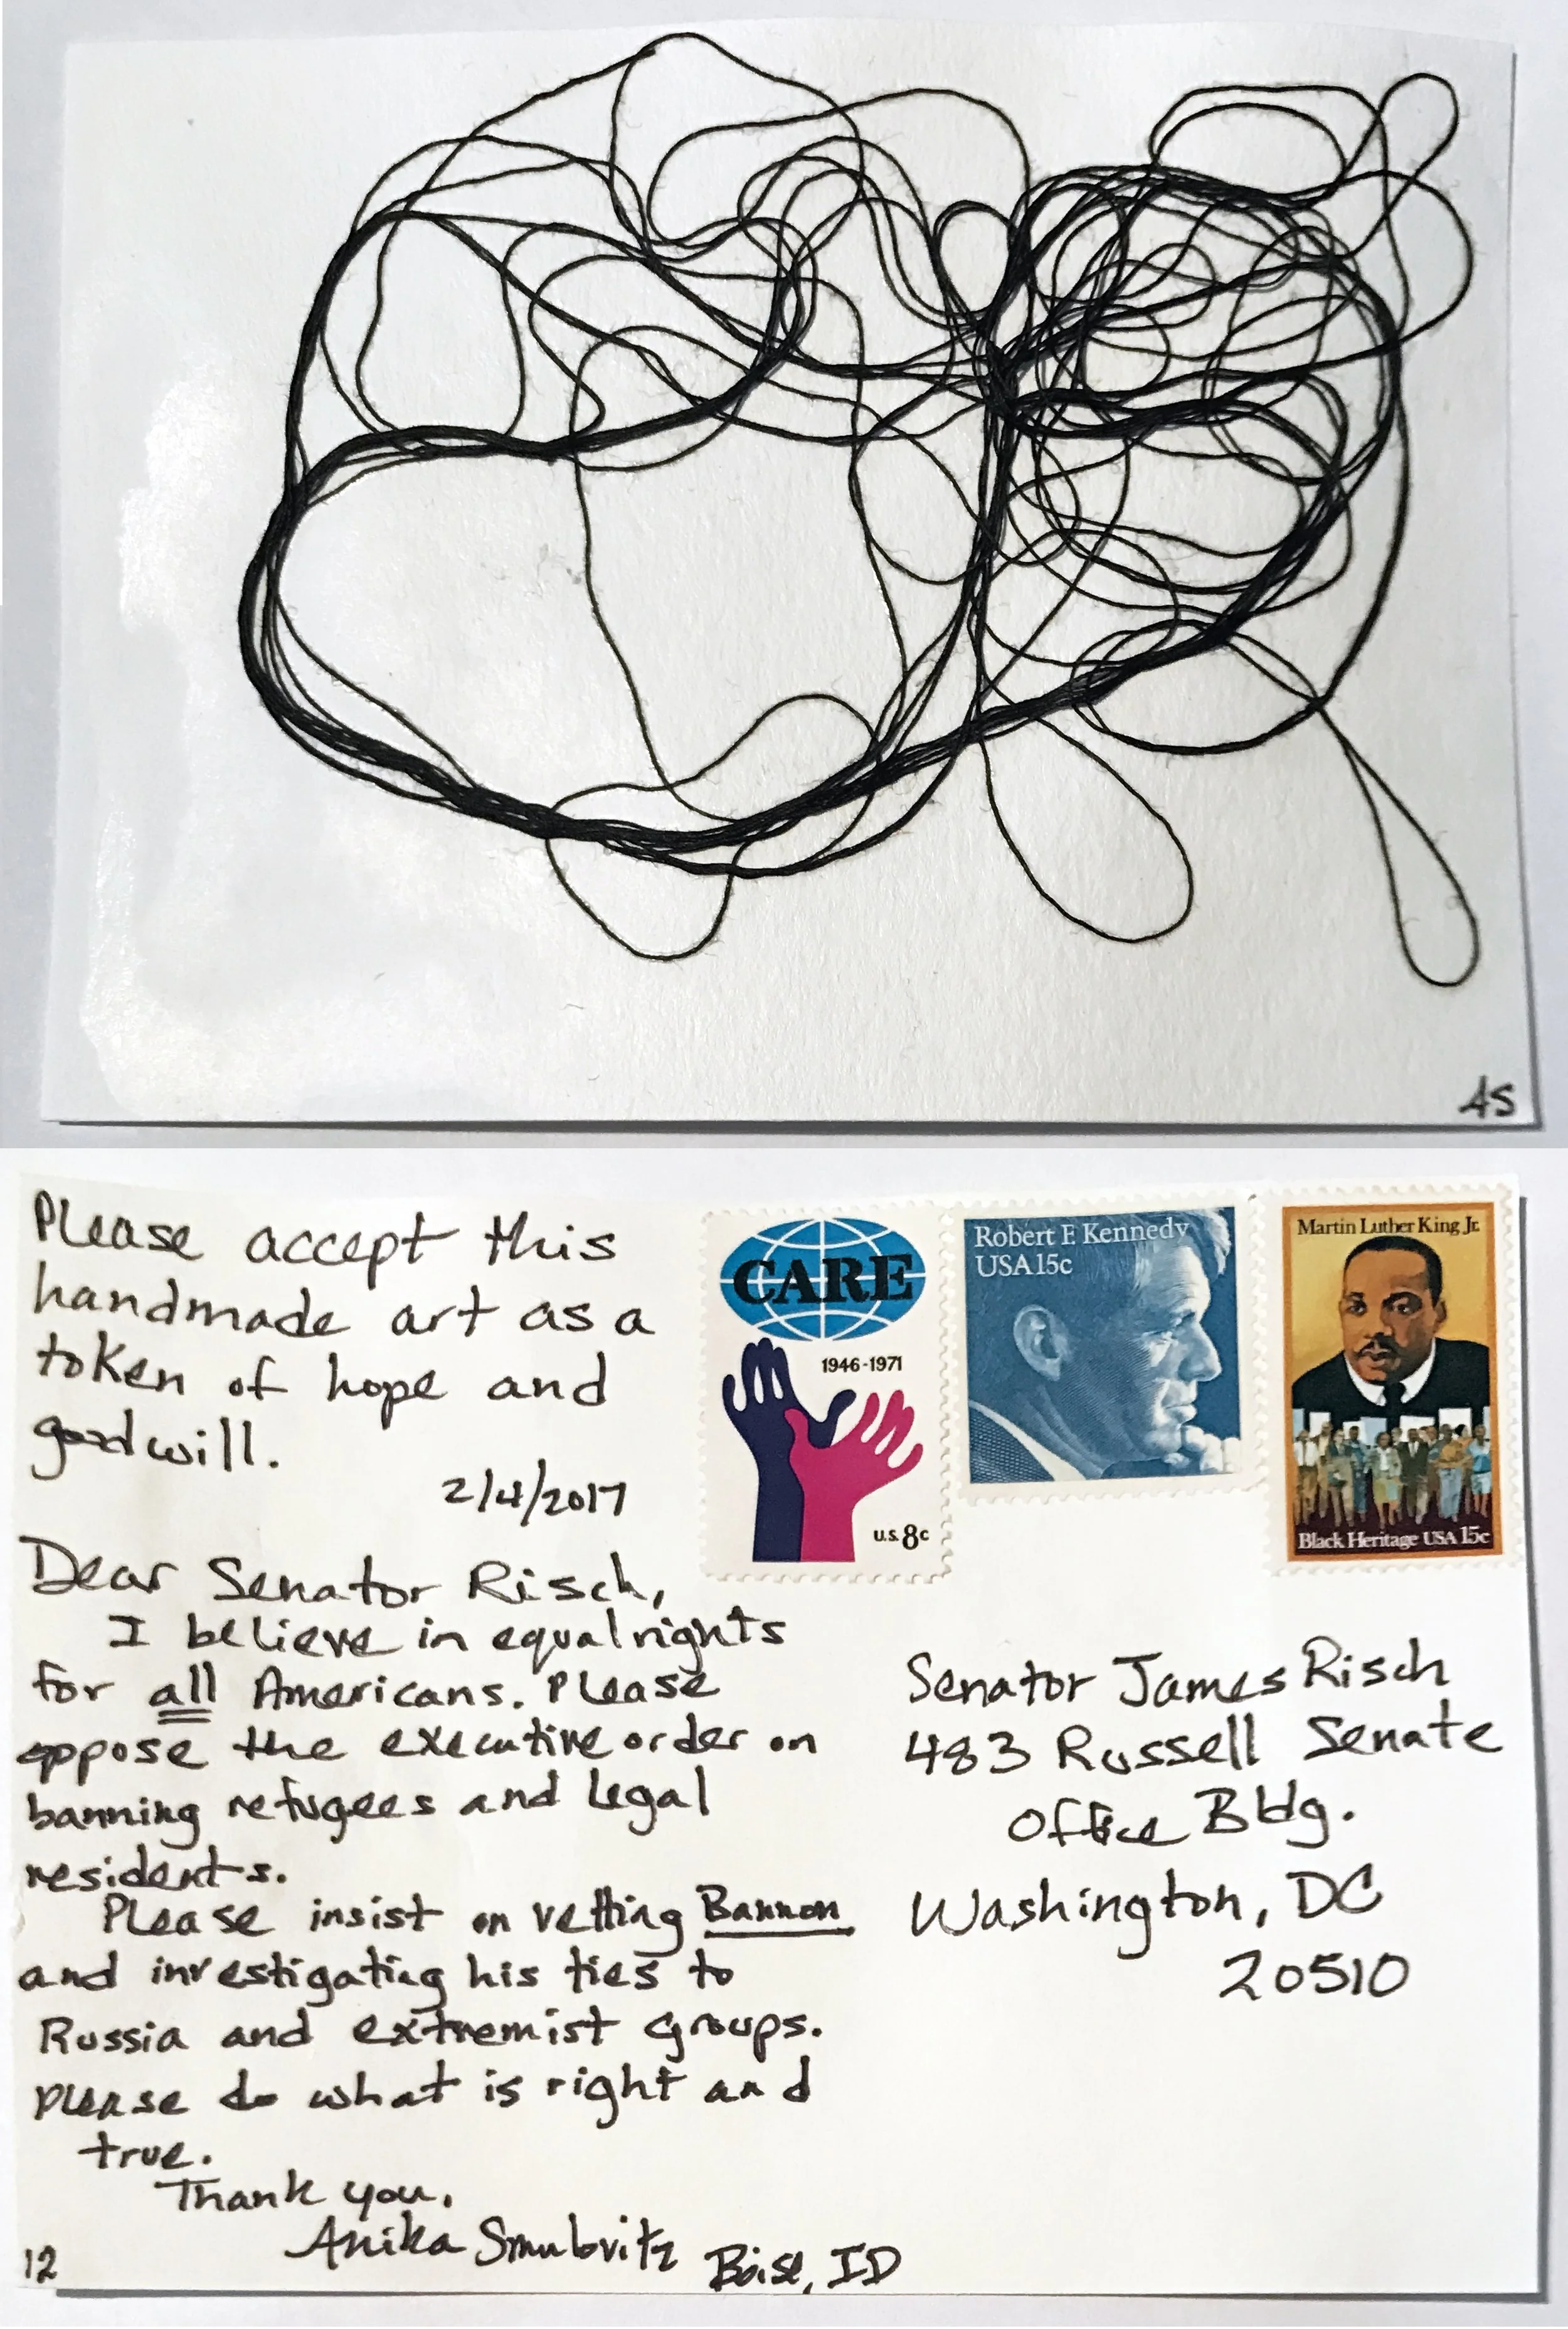 AS
Please accept this
handmade art as a
token of hope and
goodwill.
2/4/2017
CARE
1946-1971
U.S. 8c
Robert F. Kennedy
USA 15c
Martin Luther King Jr.
Black Heritage USA 15c
Dear Senator Risch,
I believe in equal rights
for all Americans. Please
oppose the executive order on
banning refugees and legal
residents.
Please insist on vetting Bannon
and investigating his ties to
Russia and extremist groups.
Please do what is right and
true.
Thank you,
Anika Smulovitz
Boise, ID
12
Senator James Risch
483 Russell Senate
Office Bldg.
Washington, DC
20510